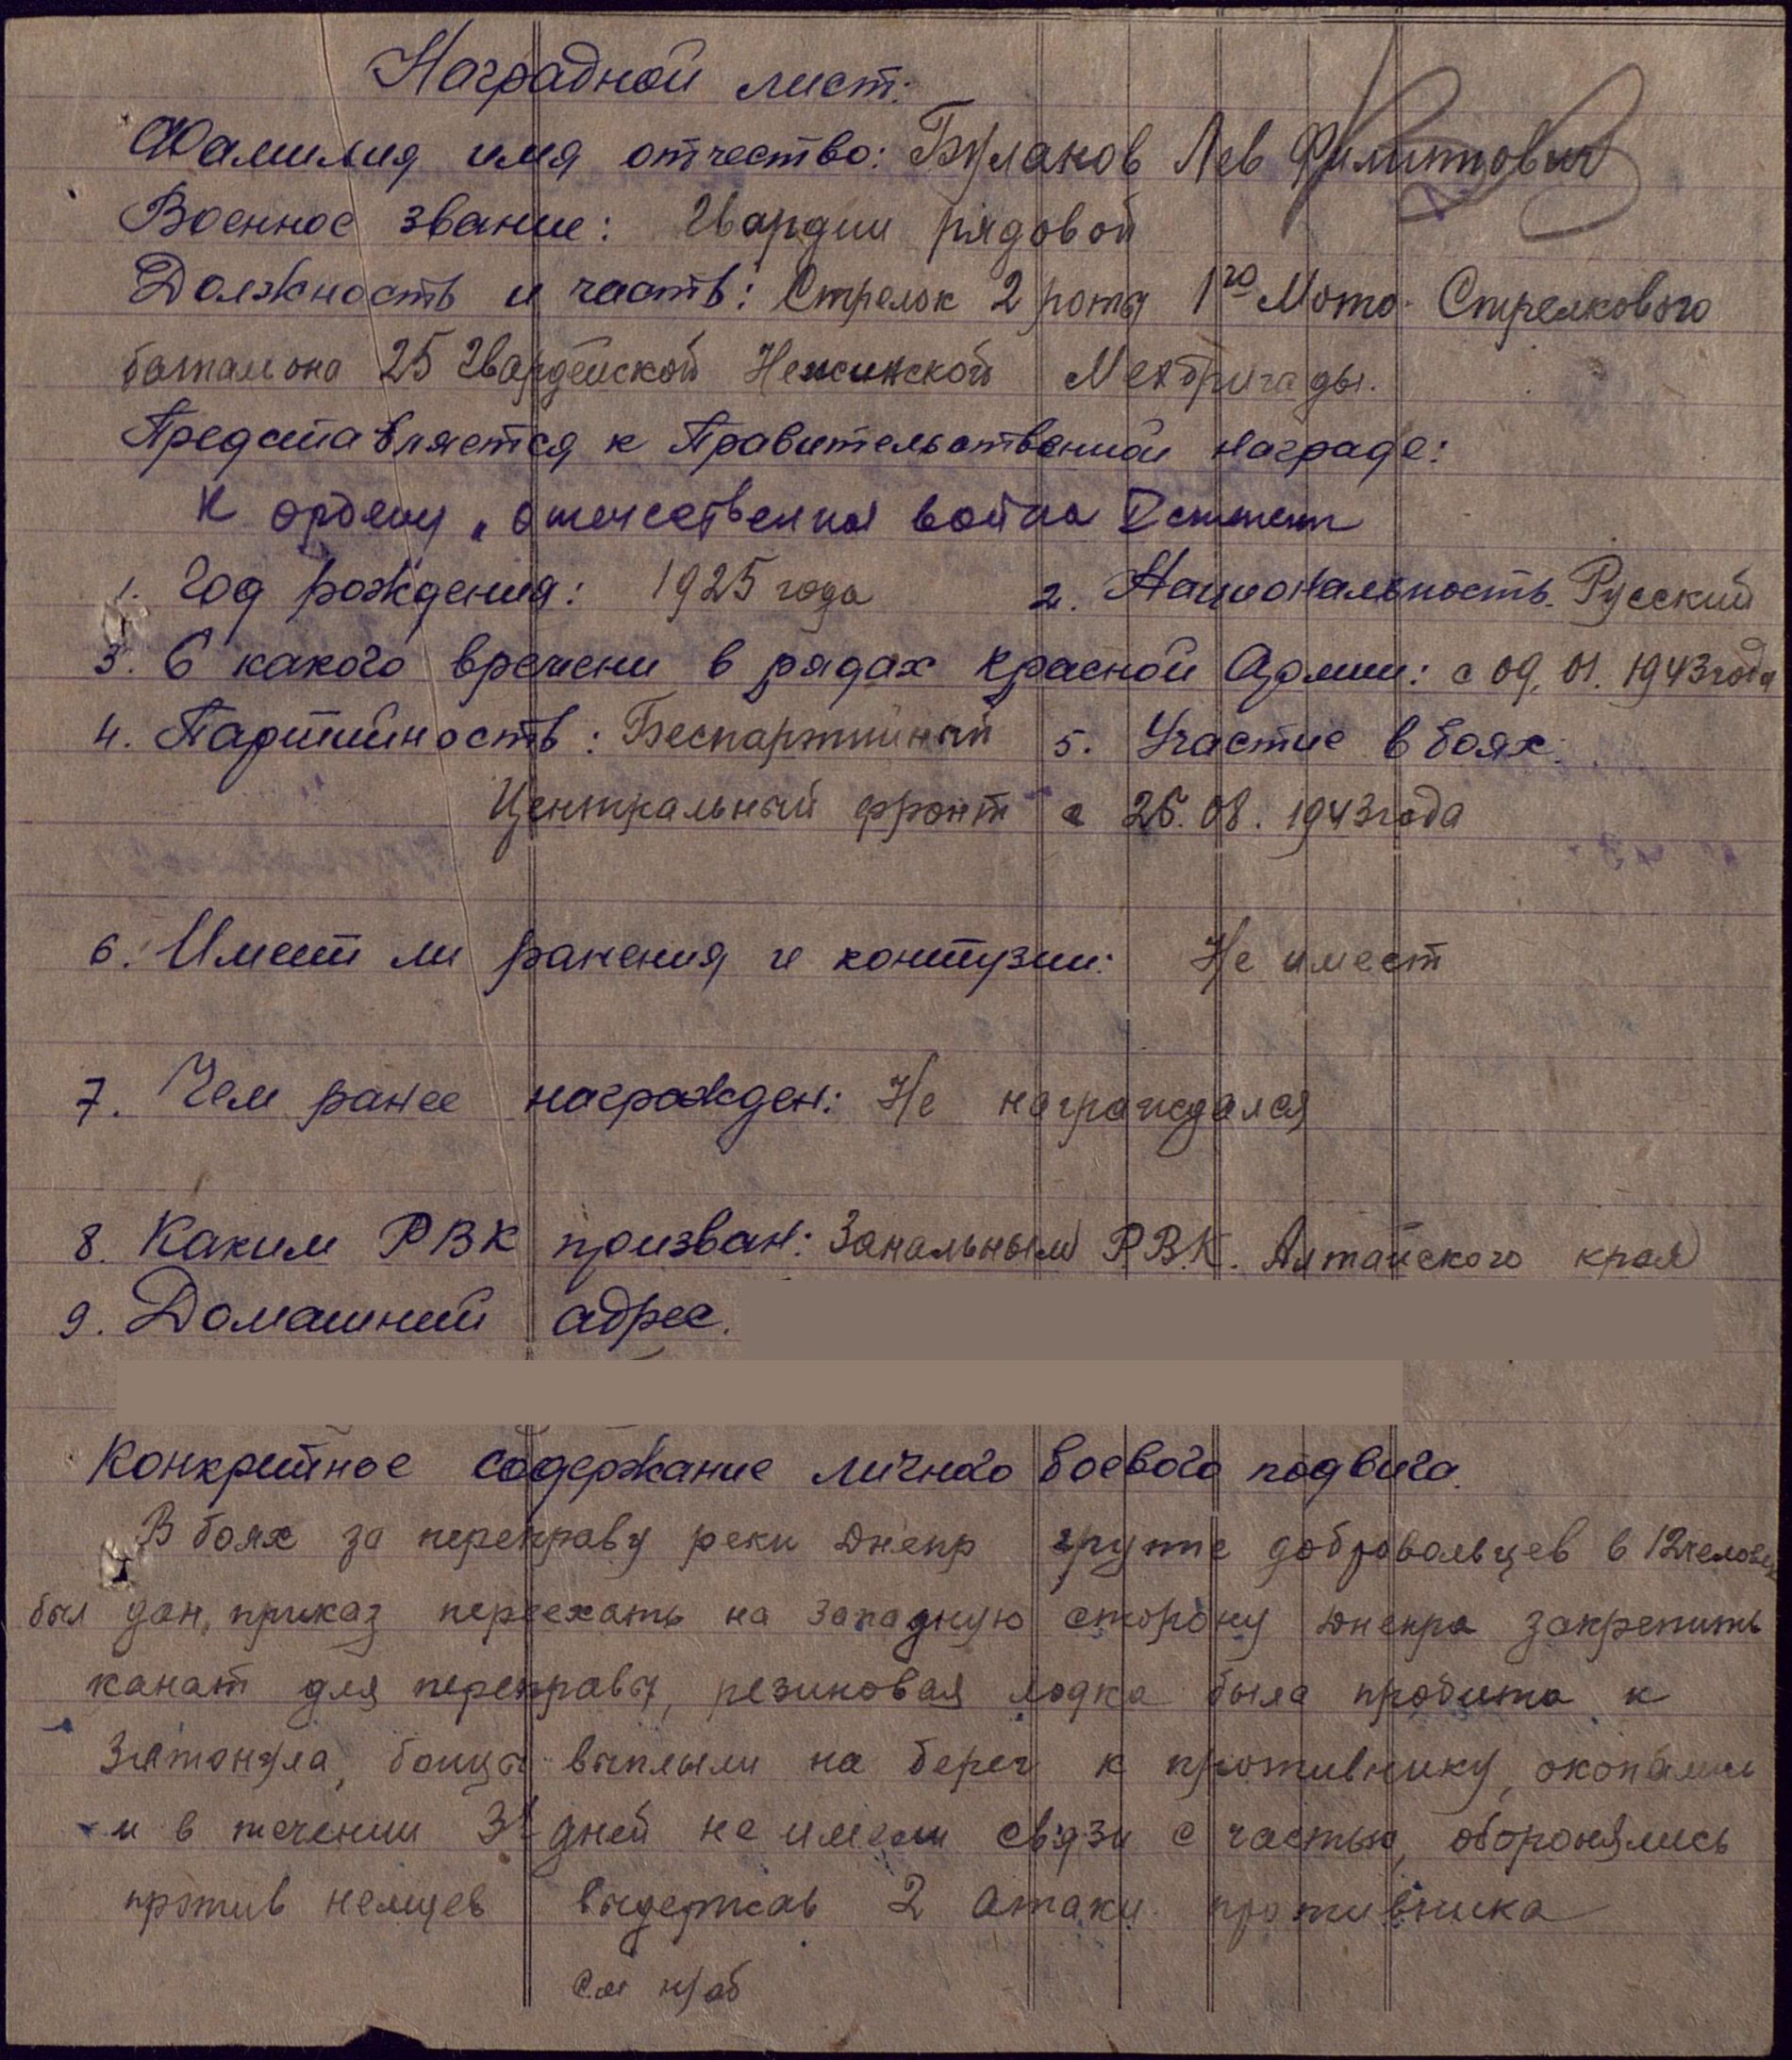 Наградной лист:
Фамилия имя отчество: Булаков Лев Филиппович
Военное звание: Гвардии рядовой
Должность и часть: Стрелок 2 роты 1го Мото-Стрелкового
батальона 25 Гвардейской Нежинской Мехбригады.
Представляется к Правительственной награде:
К ордену „Отечественная война
1. Год рождения: 1925 года 2. Национальность. Русский
3. С какого времени в рядах Красной Армии: с 09.01.1943 года
4. Партийность: Беспартийный 5. Участие в боях:
Центральный фронт с 25.08.1943 года
6. Имеет ли ранения и контузии: Не имеет
7. Чем ранее награжден: Не награждался
8. Каким РВК призван: Р.В.К. Алтайского края
9. Домашний адрес.
Конкретное содержание личного боевого подвига.
В боях за переправу реки Днепр группе добровольцев в 12 человек
был дан, приказ переехать на западную сторону Днепра закрепить
канат для переправы, резиновая лодка была пробита и
затонула, бойцы выплыли на берег к противнику, окопались
и в течении 3х дней не имели связи с частью, оборонялись
против немцев выдержав 2 атаки противника
См н/об